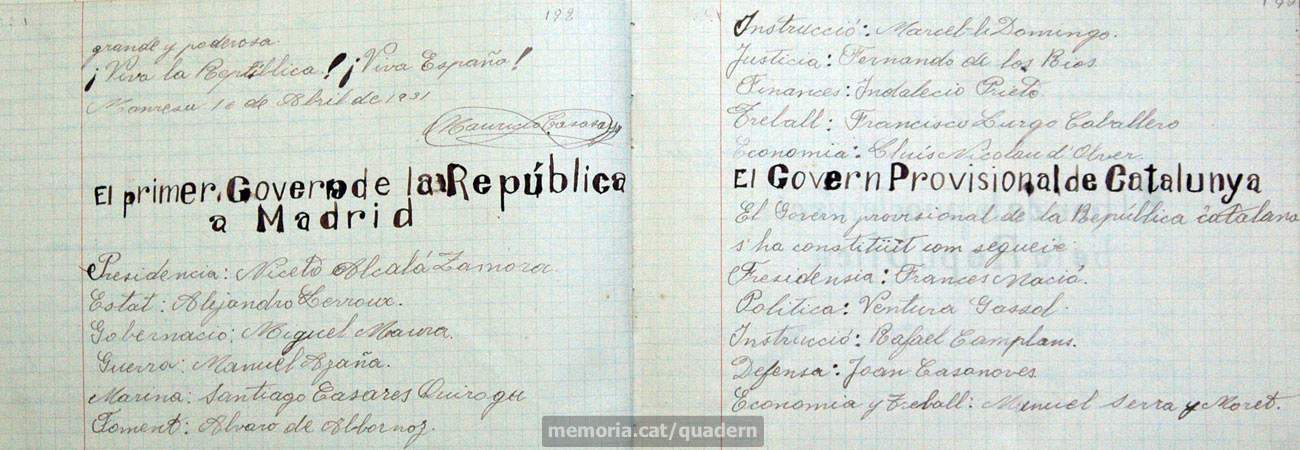 192
grande y poderosa.
¡Viva la República! ¡Viva España!
Manresa 16 de Abril de 1931
El primer Govern de la República
a Madrid
Presidencia: Niceto Alcalá Zamora.
Estat: Alejandro Lerroux.
Gobernació: Miguel Maura.
Guerra: Manuel Azaña.
Marina: Santiago Casares Quiroga
Foment: Alvaro de Albornoz.
Instrucció: Marcel·lí Domingo.
Justicia: Fernando de los Rios
Finances: Indalecio Prieto
Treball: Francisco Largo Caballero
Economia: Lluís Nicolau d'Olver.
El Govern Provisional de Catalunya
El Govern provisional de la República catalana
s'ha constitüit com segueix:
Presidensia: Frances Maciá.
Politica: Ventura Gassol.
Instrucció: Rafael Camplans.
Defensa: Joan Casanoves
Economia y Treball: Manuel Serra y Moret.
memoria.cat/quadern